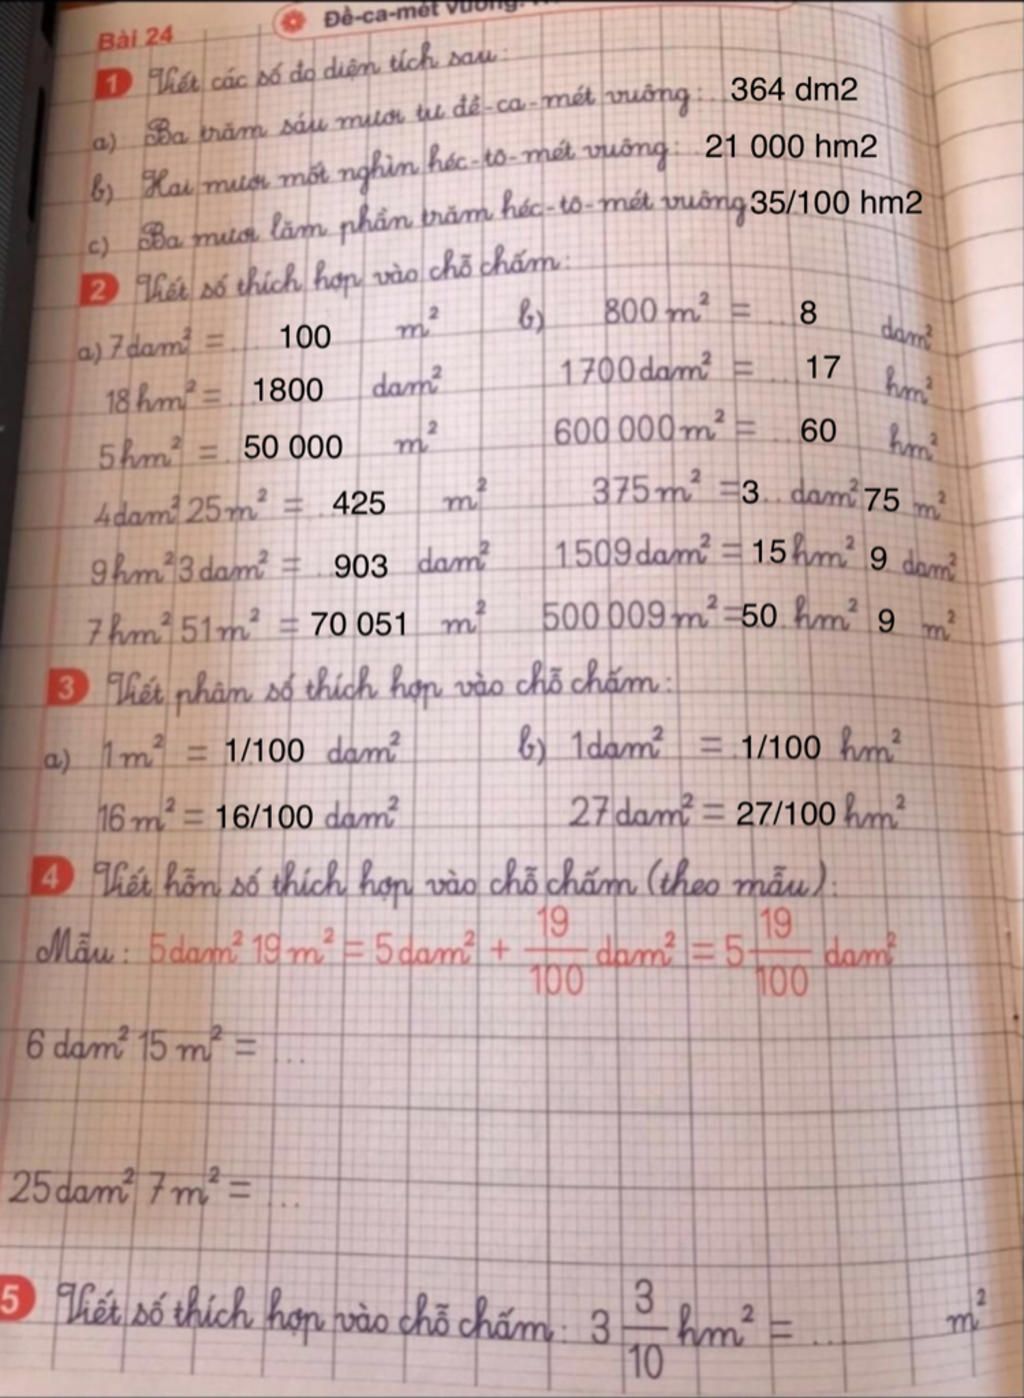 Bài 24
Đề-ca-mét vuông.
1 Viết các số đo diện tích sau:
a) Ba trăm sáu mươi tư đề-ca-mét vuông: 364 dm2
b) Hai mươi mốt nghìn héc-tô-mét vuông: 21 000 hm2
c) Ba mươi lăm phần trăm héc-tô-mét vuông 35/100 hm2
2 Viết số thích hợp vào chỗ chấm:
a) 7dam² = 100 m² b) 800 m² = 8 dam²
18hm² = 1800 dam² 1700dam² = 17 hm²
5hm² = 50 000 m² 600 000m² = 60 hm²
4dam² 25m² = 425 m² 375m² = 3 dam² 75 m²
9hm² 3dam² = 903 dam² 1509dam² = 15 hm² 9 dam²
7hm² 51m² = 70 051 m² 500 009m² = 50 hm² 9 m²
3 Viết phân số thích hợp vào chỗ chấm:
a) 1m² = 1/100 dam² b) 1dam² = 1/100 hm²
16m² = 16/100 dam² 27dam² = 27/100 hm²
4 Viết hỗn số thích hợp vào chỗ chấm (theo mẫu):
Mẫu: 5dam² 19m² = 5dam² + 19/100 dam² = 5 19/100 dam²
6 dam² 15 m² = ...
25dam² 7m² = ...
5 Viết số thích hợp vào chỗ chấm: 3 3/10 hm² = ... m²